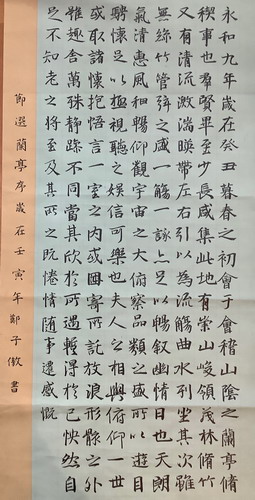 永和九年歲在癸丑暮春之初會于會稽山陰之蘭亭脩
稧事也羣賢畢至少長咸集此地有崇山峻領茂林脩竹
又有清流激湍暎帶左右引以為流觴曲水列坐其次雖
無絲竹管弦之盛一觴一詠亦足以暢敘幽情是日也天朗
氣清惠風和暢仰觀宇宙之大俯察品類之盛所以遊目
騁懷足以極視聽之娛信可樂也夫人之相與俯仰一世
或取諸懷抱悟言一室之內或因寄所託放浪形骸之外
雖趣舍萬殊靜躁不同當其欣於所遇輒得於己怏然自
足不知老之將至及其所之既惓情隨事遷感慨
節選蘭亭序歲在壬寅年鄭子書